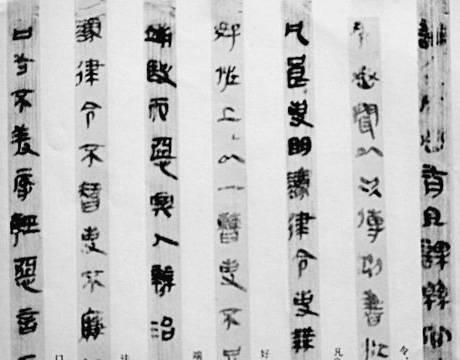 有且課縣官
丞聞以次傳別書江
凡良吏明灋律令事無
好佐上以一曹事不足
端殹而惡與人辨治
灋律令不智事不廉
口舌不羞辱輕惡言
今
凡
好
端
法
口